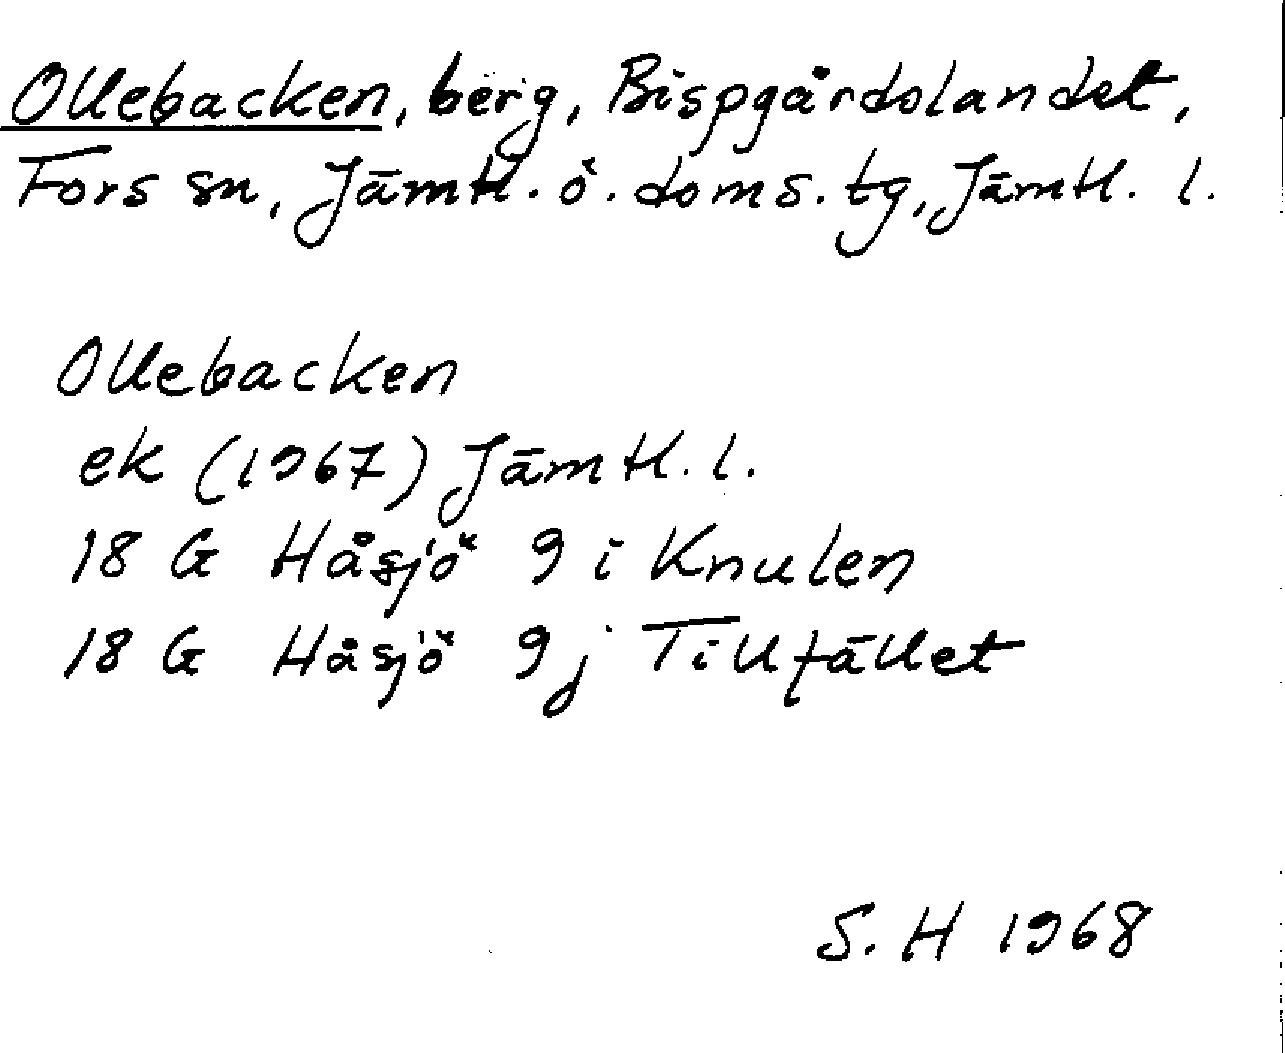 Ollebacken, berg, Bispgårdslandet,
Fors sn, Jämtl. ö. doms. tg, Jämtl. l.
Ollebacken
ek (1967) Jämtl. l.
18 G Håsjö 9 i Knulen
18 G Håsjö 9 j Tillfället
S. H 1968